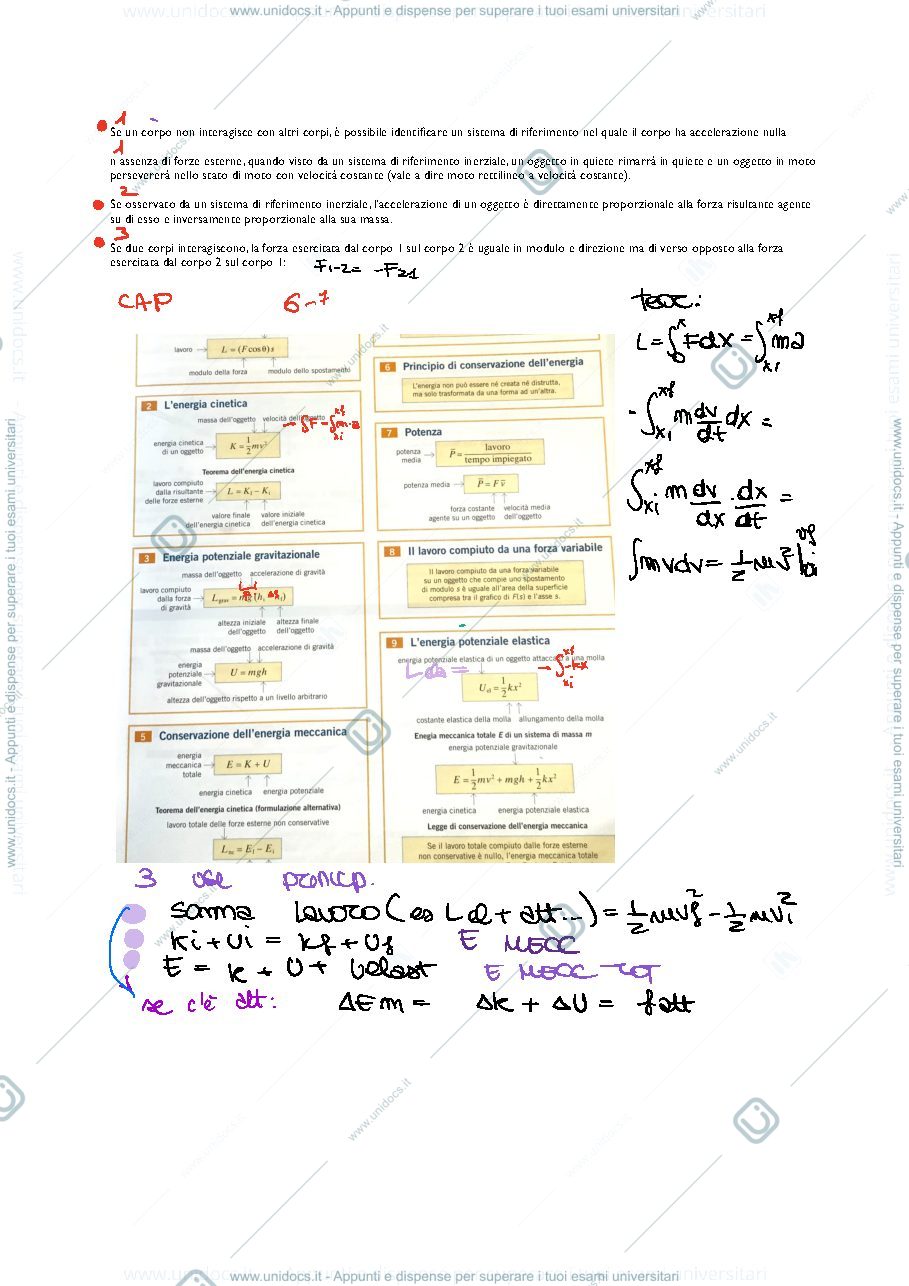 www.unidocs.it - Appunti e dispense per superare i tuoi esami universitari
1
Se un corpo non interagisce con altri corpi, è possibile identificare un sistema di riferimento nel quale il corpo ha accelerazione nulla
1
n assenza di forze esterne, quando visto da un sistema di riferimento inerziale, un oggetto in quiete rimarrà in quiete e un oggetto in moto
persevererà nello stato di moto con velocità costante (vale a dire moto rettilineo a velocità costante).
2
Se osservato da un sistema di riferimento inerziale, l'accelerazione di un oggetto è direttamente proporzionale alla forza risultante agente
su di esso e inversamente proporzionale alla sua massa.
3
Se due corpi interagiscono, la forza esercitata dal corpo 1 sul corpo 2 è uguale in modulo e direzione ma di verso opposto alla forza
esercitata dal corpo 2 sul corpo 1: F1-2 = -F21
CAP 6-7
lavoro → L = (F cos θ)s
modulo della forza modulo dello spostamento
2 L'energia cinetica
massa dell'oggetto velocità dell'oggetto
energia cinetica
di un oggetto → K = 1/2 mv²
Teorema dell'energia cinetica
lavoro compiuto
dalla risultante → L = Kf - Ki
delle forze esterne
valore finale valore iniziale
dell'energia cinetica dell'energia cinetica
3 Energia potenziale gravitazionale
massa dell'oggetto accelerazione di gravità
lavoro compiuto
dalla forza → Lgrav = mg(hi
di gravità
altezza iniziale altezza finale
dell'oggetto dell'oggetto
massa dell'oggetto accelerazione di gravità
energia
potenziale → U = mgh
gravitazionale
altezza dell'oggetto rispetto a un livello arbitrario
5 Conservazione dell'energia meccanica
energia
meccanica → E = K + U
totale
energia cinetica energia potenziale
Teorema dell'energia cinetica (formulazione alternativa)
lavoro totale delle forze esterne non conservative
Lnc = Ef - Ei
6 Principio di conservazione dell'energia
L'energia non può essere né creata né distrutta,
ma solo trasformata da una forma ad un'altra.
7 Potenza
potenza
media → P = lavoro / tempo impiegato
potenza media → P = F v
forza costante velocità media
agente su un oggetto dell'oggetto
8 Il lavoro compiuto da una forza variabile
Il lavoro compiuto da una forza variabile
su un oggetto che compie uno spostamento
di modulo s è uguale all'area della superficie
compresa tra il grafico di F(s) e l'asse s.
9 L'energia potenziale elastica
energia potenziale elastica di un oggetto attaccato a una molla
→ ∫xi xf -kx
Uel = 1/2 kx²
costante elastica della molla allungamento della molla
Enegia meccanica totale E di un sistema di massa m
energia potenziale gravitazionale
E = 1/2 mv² + mgh + 1/2 kx²
energia cinetica energia potenziale elastica
Legge di conservazione dell'energia meccanica
Se il lavoro totale compiuto dalle forze esterne
non conservative è nullo, l'energia meccanica totale
teor:
L = ∫0 x Fdx = ∫xi xf ma
- ∫xi xf m dv/dt dx =
∫xi xf m dv/dx . dx/dt =
∫mvdv = 1/2 mv²
3 use princip.
somma lavoro (es Lel + att...) = 1/2 mvf² - 1/2 mvi²
Ki + Ui = Kf + Uf E MECC
E = K + U + Uelast E MECC TOT
se c'è att: ΔEm = Δk + ΔU = fatt
www.unidocs.it - Appunti e dispense per superare i tuoi esami universitari